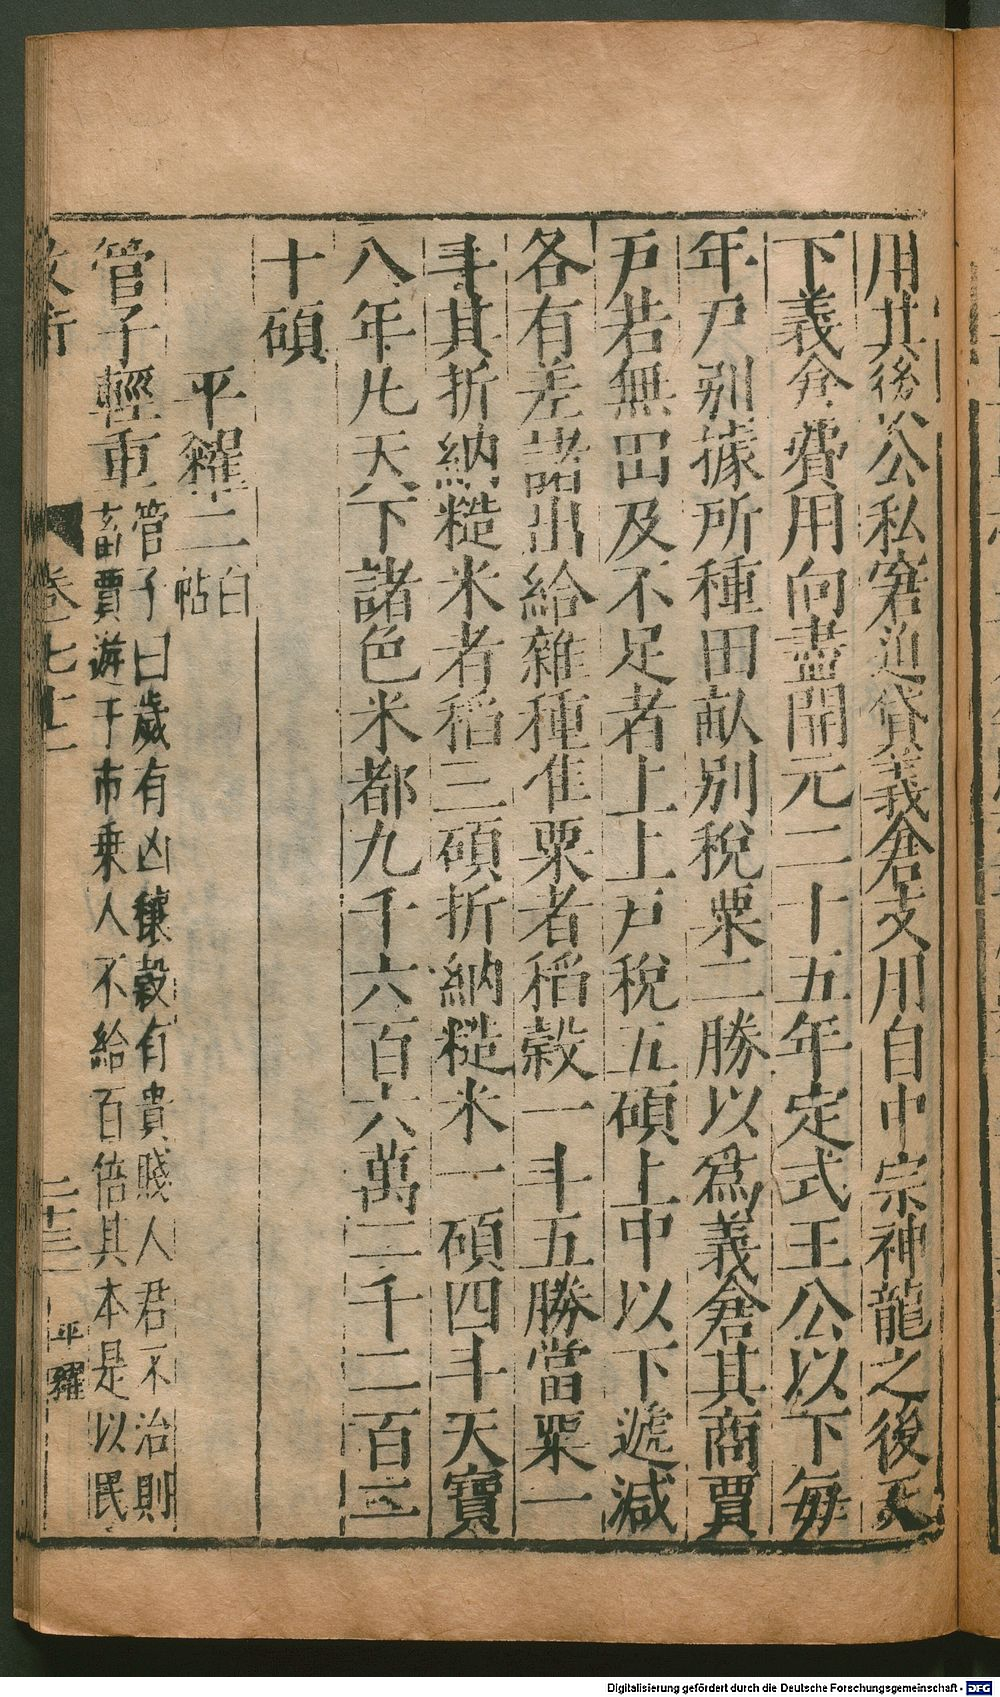 用其後公私窘迫貸義倉支用自中宗神龍之後天
下義倉費用向盡開元二十五年定式王公以下每
年戸別據所種田畝別稅粟二勝以爲義倉其商賈
戸若無田及不足者上上戸稅五碩上中以下遞減
各有差諸出給雜種准粟者稻穀一斗五勝當粟一
斗其折納糙米者稻三碩折納糙米一碩四斗天寶
八年凡天下諸色米都九千六百六萬二千二百二
十碩
平糴二白
帖
管子輕重管子曰歲有凶穰穀有貴賤人君不治則
畜賈游于市乗人不給百倍其本是以民
卷七十一
二十三
平糴
Digitalisierung gefördert durch die Deutsche Forschungsgemeinschaft - DFG